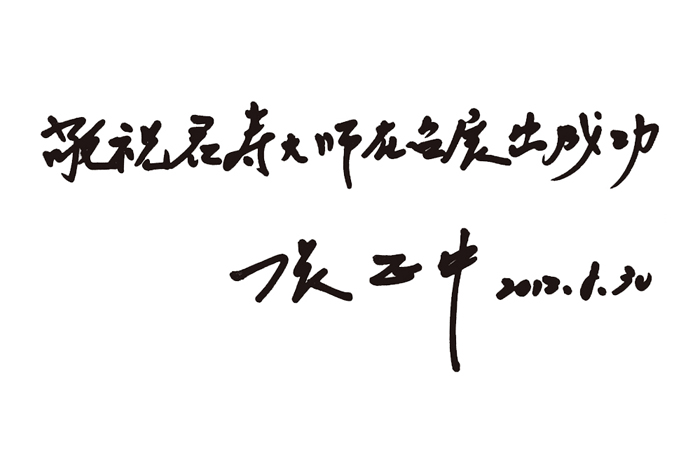 敬祝君寿大师在台展出成功
张正中 2012.8.30